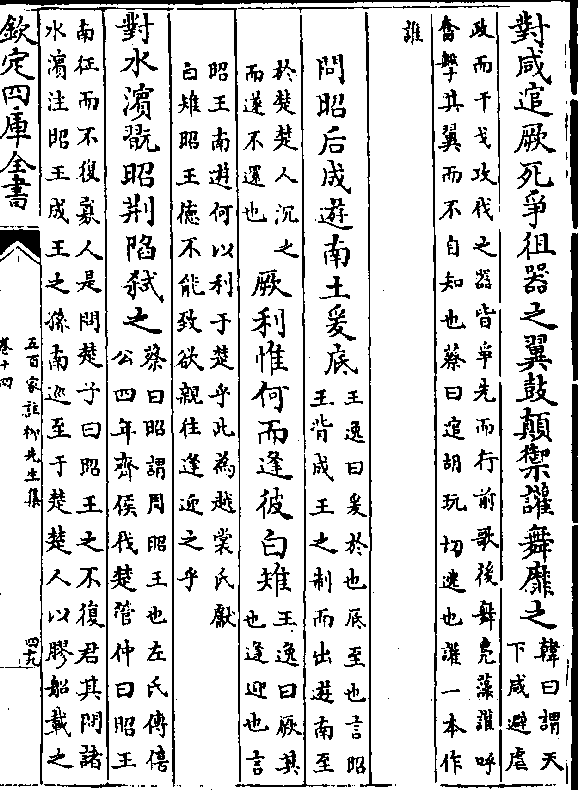 對咸逭厥死爭徂器之翼鼓顛禦讙舞靡之韓曰謂天
下咸避虐
政而干戈攻伐之器皆爭先而行前歌後舞鳬藻讙呼
奮擊其翼而不自知也蔡曰逭胡玩切逃也讙一本作
誰
問昭后成遊南土爰底王逸曰爰於也底至也言昭
王背成王之制而出遊南至
於楚楚人沉之
而遂不還也厥利惟何而逢彼白雉王逸曰厥其
也逢迎也言
昭王南遊何以利于楚乎此為越裳氏獻
白雉昭王德不能致欲親往逢迎之乎
對水濱翫昭荆陷弑之蔡曰昭謂周昭王也左氏傳僖
公四年齊侯伐楚管仲曰昭王
南征而不復寡人是問楚子曰昭王之不復君其問諸
水濱注昭王成王之孫南巡至于楚楚人以膠船載之
欽定四庫全書
五百家註柳先生集
卷十四
四十九